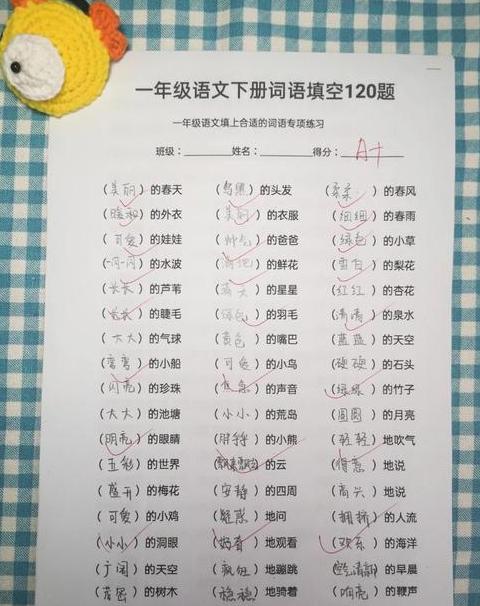 一年级语文下册词语填空120题
一年级语文填上合适的词语专项练习
班级：________ 姓名：________ 得分：A+
（美丽）的春天 （乌黑）的头发 （柔柔）的春风
（暖和）的外衣 （美丽）的衣服 （细细）的春雨
（可爱）的娃娃 （帅气）的爸爸 （绿色）的小草
（一闪一闪）的水波 （ ）的鲜花 （雪白）的梨花
（长长）的芦苇 （ ）的星星 （红红）的杏花
（长长）的睫毛 （绿色）的羽毛 （清清）的泉水
（大大）的气球 （黄色）的嘴巴 （蓝蓝）的天空
（弯弯）的小船 （可爱）的小鸟 （硬硬）的石头
（闪亮）的珍珠 （焦急）的声音 （绿绿）的竹子
（大大）的池塘 （小小）的荒岛 （圆圆）的月亮
（明亮）的眼睛 （胖胖）的小熊 （轻轻）地吹气
（五彩）的世界 （飘来飘去）的云 （得意）地说
（盛开）的梅花 （安静）的四周 （高兴）地说
（可爱）的小鸡 （疑惑）地问 （拥挤）的人流
（小小）的洞眼 （好奇）地观看 （欢乐）的海洋
（广阔）的天空 （疯狂）地蹦跳 （ ）的早晨
（茂密）的树木 （稳稳）地骑着 （响亮）的鞭声